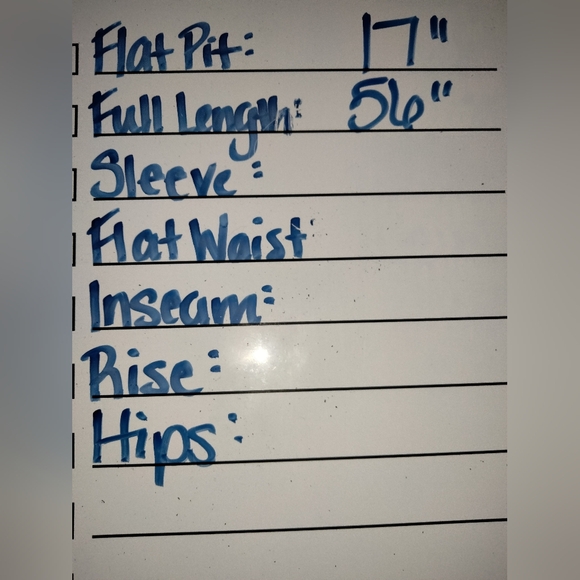 Flat Pit: 17"
Full Length: 56"
Sleeve:
Flat Waist
Inseam:
Rise:
Hips: